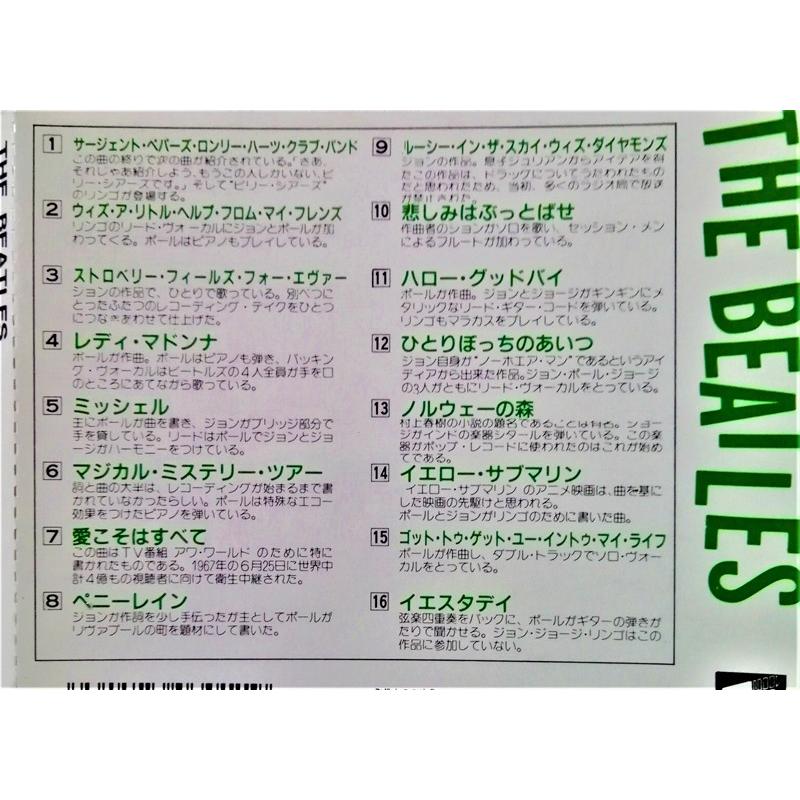 1 サージェント・ペパーズ・ロンリー・ハーツ・クラブ・バンド
この曲の終りで次の曲が紹介されている。「さあ、
それじゃあ紹介しよう、もうこの人しかいない、ビ
リー・シアーズです。」そして"ビリー・シアーズ"
のリンゴが登場する。
2 ウィズ・ア・リトル・ヘルプ・フロム・マイ・フレンズ
リンゴのリード・ヴォーカルにジョンとポールが加
わってくる。ポールはピアノもプレイしている。
3 ストロベリー・フィールズ・フォー・エヴァー
ジョンの作品で、ひとりで歌っている。別べつに
とったふたつのレコーディング・テイクをひとつ
につなぎあわせて仕上げた。
4 レディ・マドンナ
ポールが作曲。ポールはピアノも弾き、バッキン
グ・ヴォーカルはビートルズの4人全員が手を口
のところにあてながら歌っている。
5 ミッシェル
主にポールが曲を書き、ジョンがブリッジ部分で
手を貸している。リードはポールでジョンとジョ
ージがハーモニーをつけている。
6 マジカル・ミステリー・ツアー
詞と曲の大半は、レコーディングが始まるまで書
かれていなかったらしい。ポールは特殊なエコー
効果をつけたピアノを弾いている。
7 愛こそはすべて
この曲はTV番組 アワ・ワールド のために特に
書かれたものである。1967年の6月25日に世界中
計4億もの視聴者に向けて衛生中継された。
8 ペニーレイン
ジョンが作詞を少し手伝ったが主としてポールが
リヴァプールの町を題材にして書いた。
9 ルーシー・イン・ザ・スカイ・ウィズ・ダイヤモンズ
ジョンの作品。息子ジュリアンからアイデアを得
たこの作品は、ドラッグについてうたわれたもの
だと思われたため、当初、多くのラジオ局で放送
が禁止された。
10 悲しみはぶっとばせ
作曲者のジョンがソロを歌い、セッション・メン
によるフルートが加わっている。
11 ハロー・グッドバイ
ポールが作曲。ジョンとジョージがギンギンにメ
タリックなリード・ギター・コードを弾いている。
リンゴもマラカスをプレイしている。
12 ひとりぼっちのあいつ
ジョン自身が"ノーホエア・マン"であるというアイ
ディアから出来た作品。ジョン・ポール・ジョージ
の3人がともにリード・ヴォーカルをとっている。
13 ノルウェーの森
村上春樹の小説の題名であることは有名。ジョー
ジがインドの楽器シタールを弾いている。この楽
器がポップ・レコードに使われたのはこれが始め
てである。
14 イエロー・サブマリン
イエロー・サブマリン のアニメ映画は、曲を基に
した映画の先駆けと思われる。
ポールとジョンがリンゴのために書いた曲。
15 ゴット・トゥ・ゲット・ユー・イントゥ・マイ・ライフ
ポールが作曲し、ダブル・トラックでソロ・ヴォー
カルをとっている。
16 イエスタデイ
弦楽四重奏をバックに、ポールがギターの弾きが
たりで聞かせる。ジョン・ジョージ・リンゴはこの
作品に参加していない。
THE BEATLES
THE BEATLES